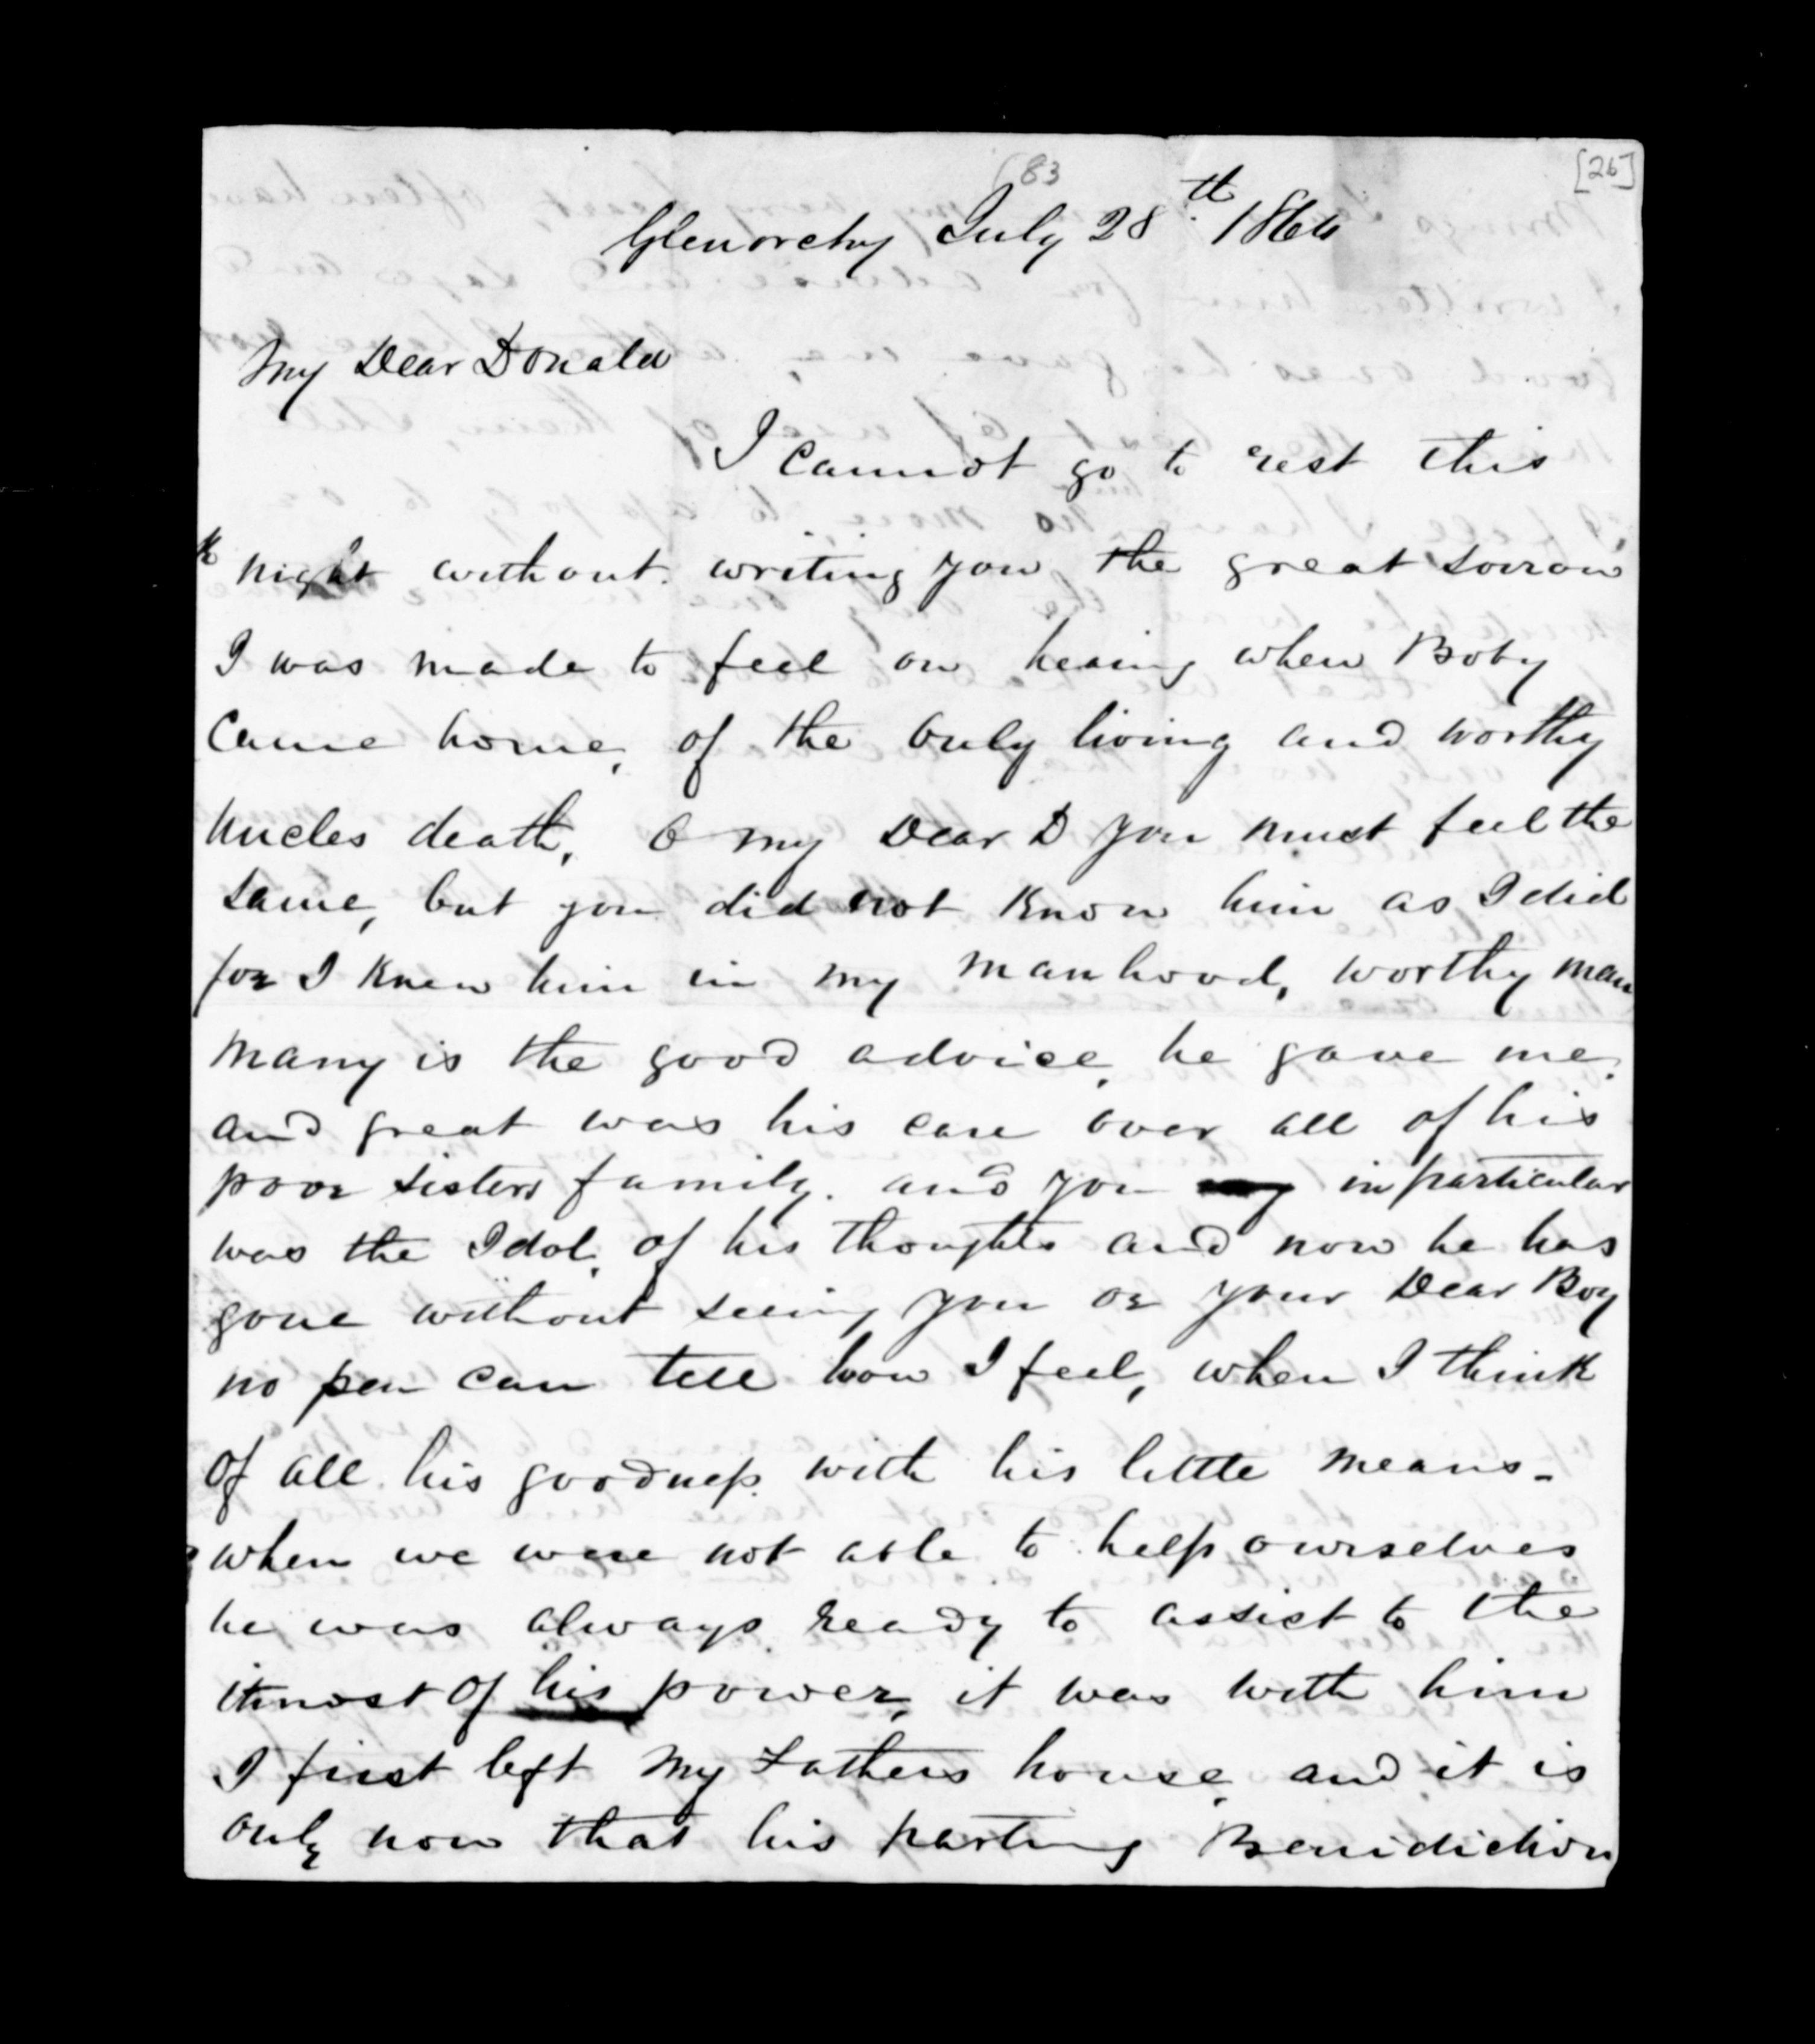 (83
[26]
Glenorchy July 28th 1866
My Dear Donald
I cannot go to rest this
night without writing you the great sorrow
I was made to feel on hearing when Boby
Came home, of the only living and worthy
uncles death, O my Dear D you must feel the
same, but you did not know him as I did
for I knew him in my manhood, worthy man
many is the good advice he gave me,
and great was his care over all of his
poor sisters family. and you in particular
was the Idol, of his thoughts and now he has
gone without seeing you or your Dear Boy
no pen can tell how I feel, when I think
of all his goodness with his little means -
when we were not able to help ourselves
he was always ready to assist to the
utmost of his power, it was with him
I first left my Fathers house, and it is
only now that his parting Benidiction